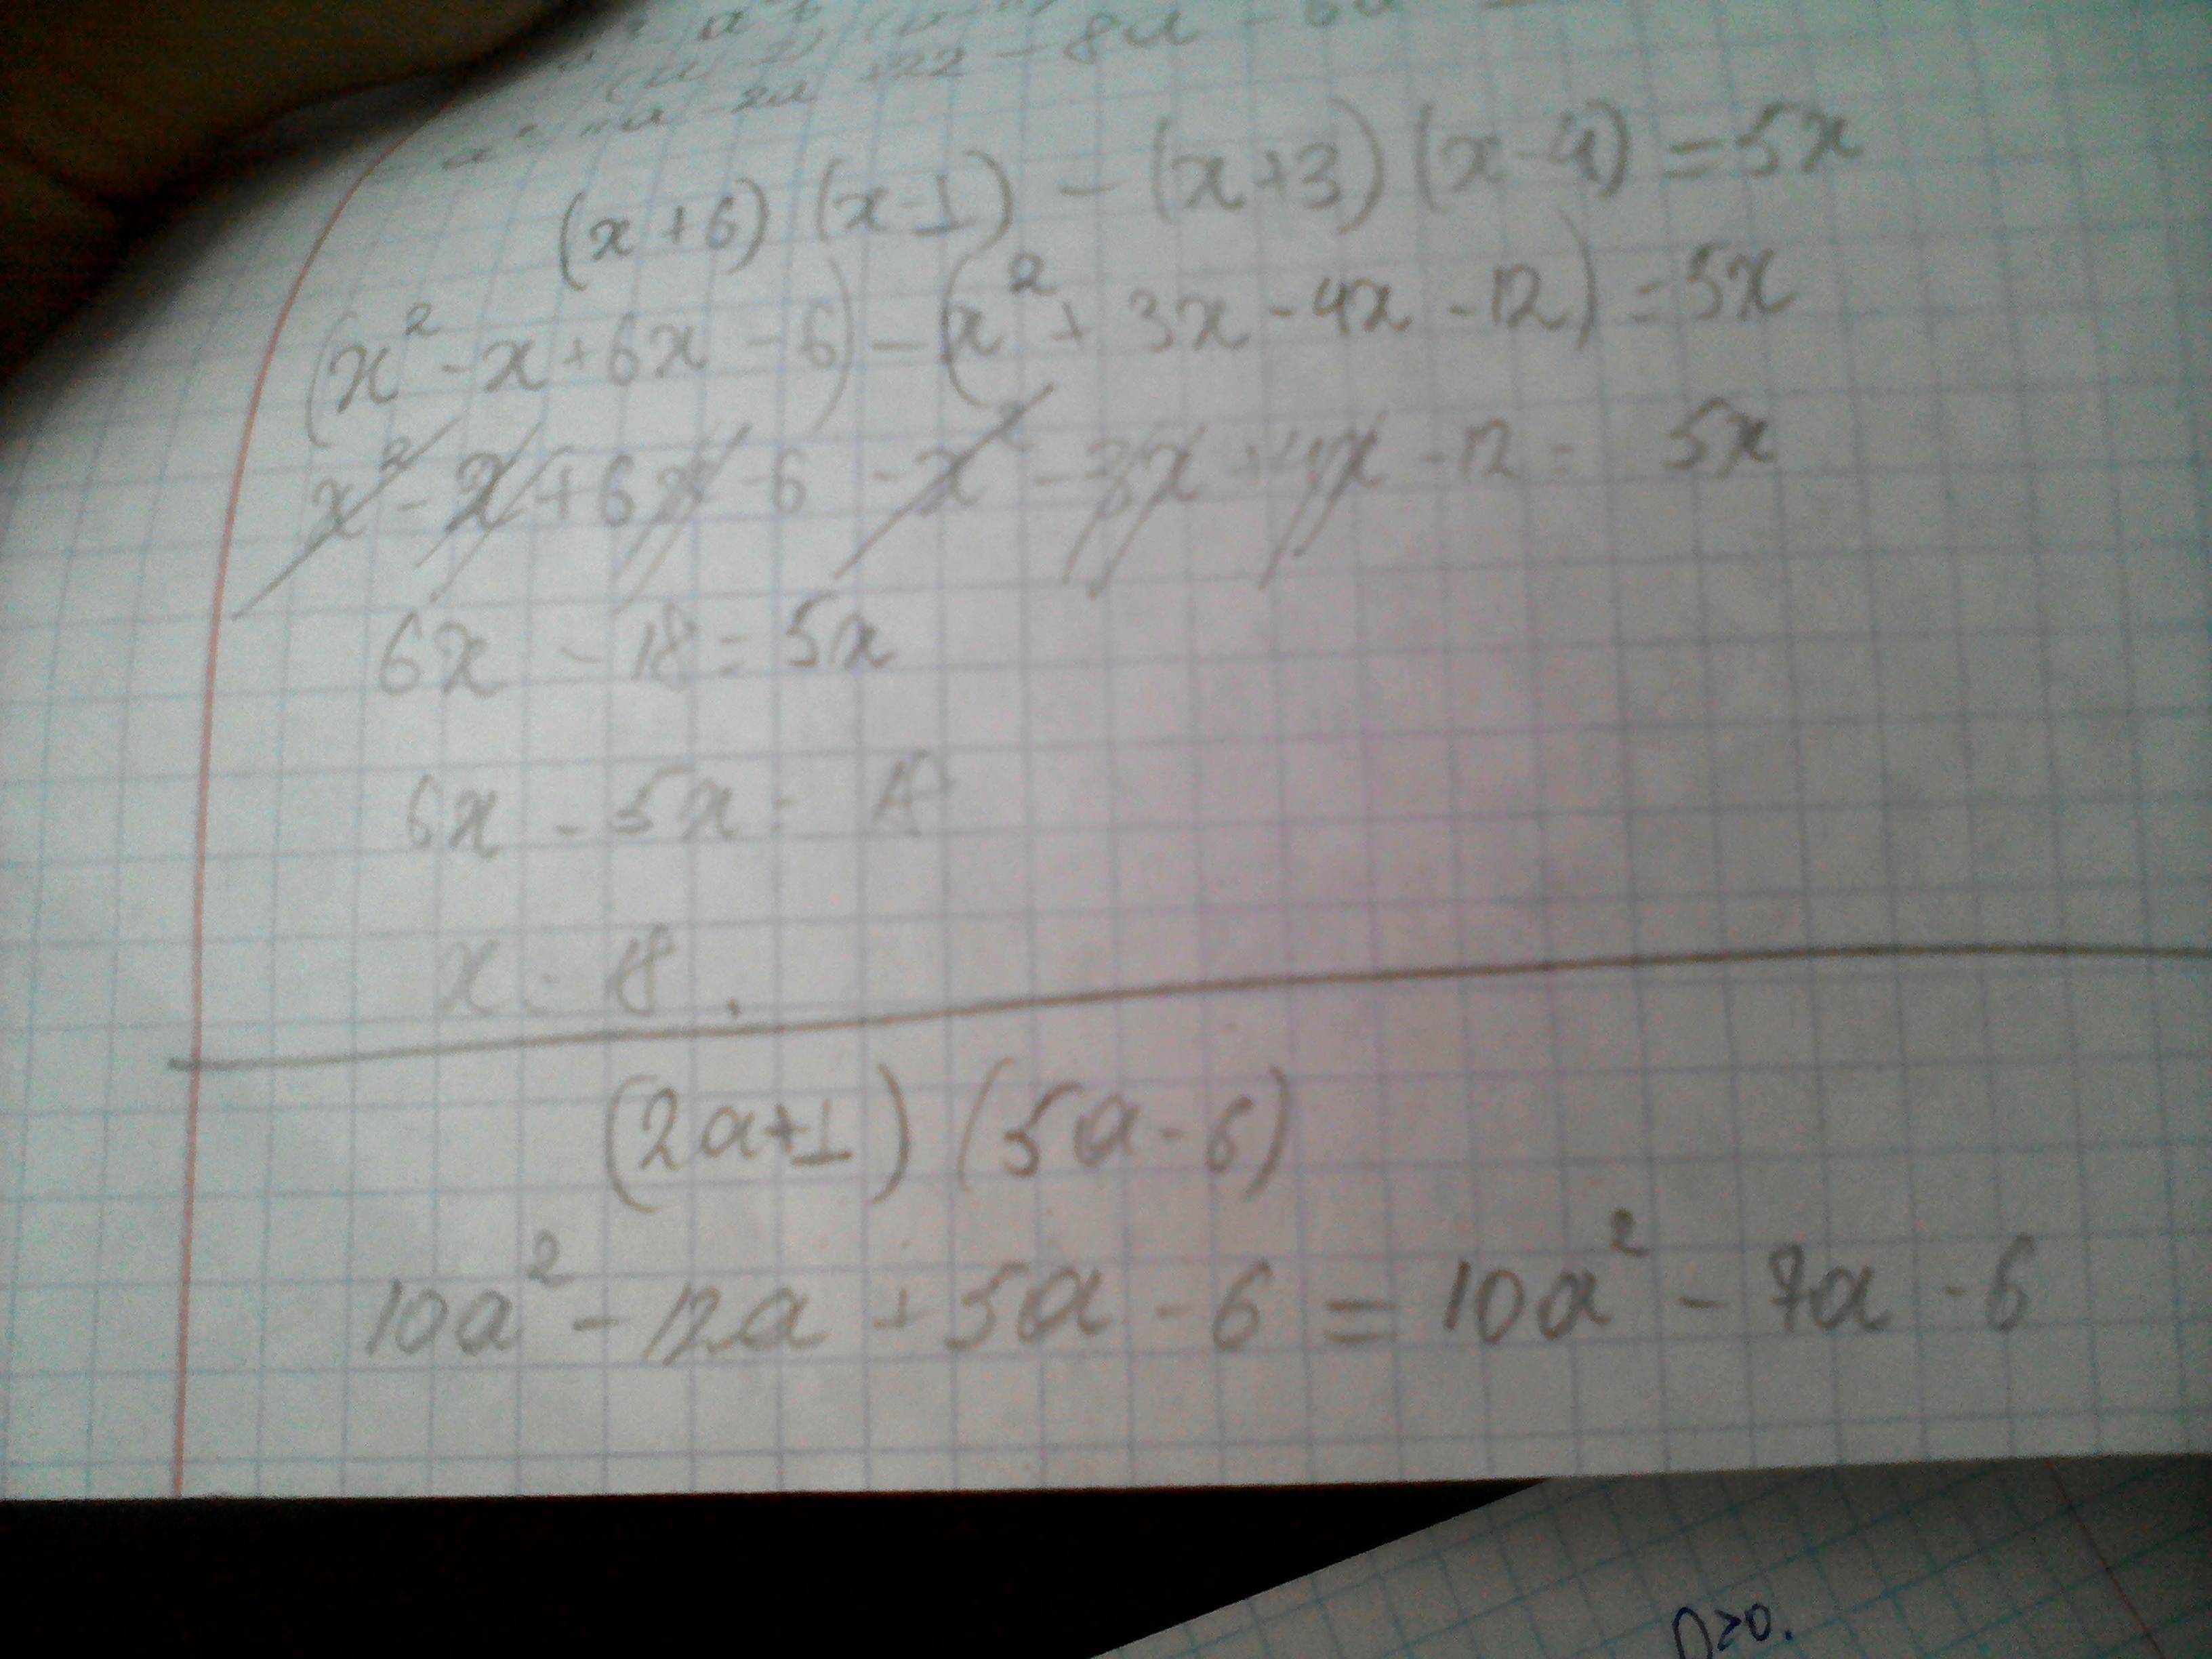 (x+6) (x-1) - (x+3) (x-4) = 5x
(x² - x + 6x - 6) - (x² + 3x - 4x - 12) = 5x
x² - x + 6x - 6 - x² - 3x + 4x - 12 = 5x
6x - 18 = 5x
6x - 5x = 18
x = 18.
(2a+1) (5a-6)
10a² - 12a + 5a - 6 = 10a² - 7a - 6
n≥0.